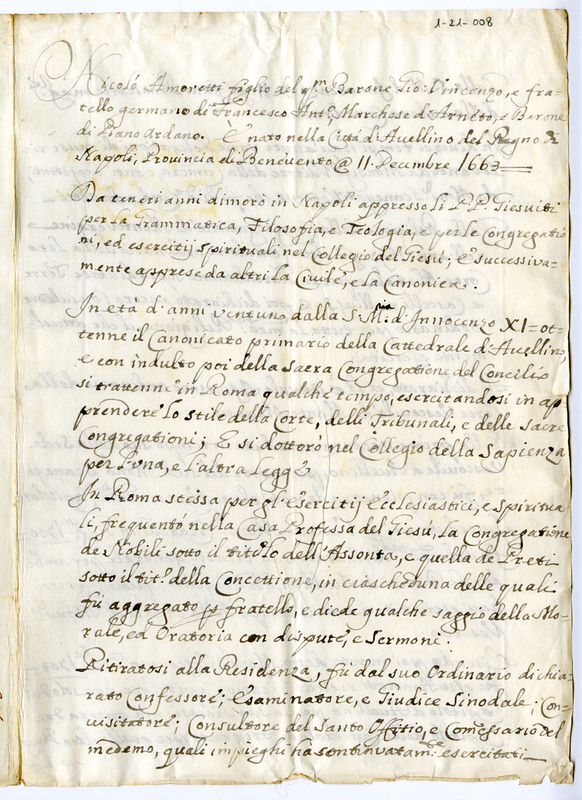 1-21-008
Nicolò Amoretti figlio del qm Barone Gio: Vincenzo, e fra=
tello germano di Francesco Anto, Marchese d'Arnéto, e Barone
di Piano Ardano. È nato nella Città d'Avellino del Regno di
Napoli, Provincia di Benevento @ 11 Decembre 1663
Da teneri anni dimorò in Napoli appresso li PP. Giesuiti
per la Grammatica, Filosofia, e Teologia, e per le Congregatio
ni, ed esercitij spirituali nel Collegio del Giesù; e successiva-
mente apprese da altri la Civile, e la Canonica.
In età d'anni ventuno dalla S. Mria d'Innocenzo XI= ot-
tenne il Canonicato primario della Cattedrale d'Avellino,
e con indulto poi della sacra Congregatione del Concilio
si trattenne in Roma qualche tempo, esercitandosi in ap
prendere lo stile della Corte, delli Tribunali, e delle sacre
Congregationi; E si dottorò nel Collegio della Sapienza
per l'una, e l'altra Legge
In Roma stessa per gl'esercitij ecclesiastici, e spiritua
li, frequentò nella Casa Professa del Giesù, la Congregatione
de Nobili sotto il titolo dell'Assonta, e quella de Preti
sotto il tito della Concettione, in ciascheduna delle quali
fù aggregato p fratello, e diede qualche saggio della Mo=
rale, ed Oratoria con dispute, e sermoni.
Ritiratosi alla Residenza, fù dal suo Ordinario dichia-
rato Confessore; Esaminatore, e Giudice Sinodale; Con-
visitatore; Consultore del Santo Offitio, e Comessario del
medemo, quali impieghi hà continuatamte esercitati